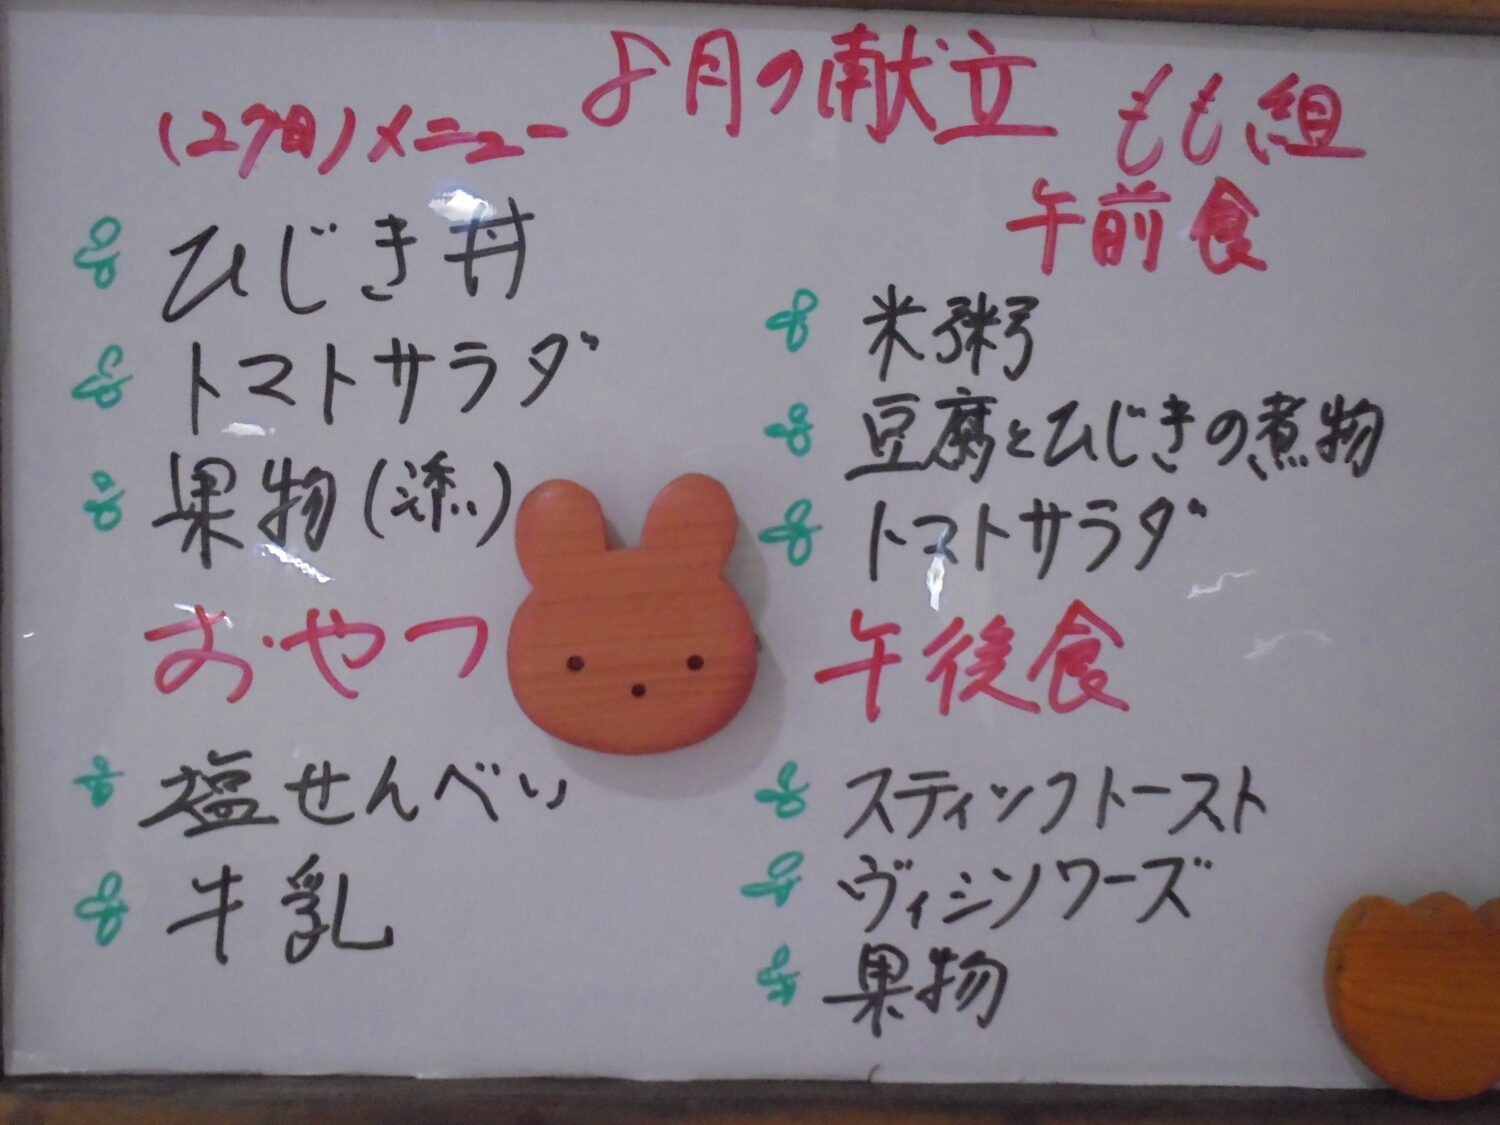 8月の献立
(27日)メニュー
ひじき丼
トマトサラダ
果物(添)
おやつ
塩せんべい
牛乳
もも組
午前食
米粥
豆腐とひじきの煮物
トマトサラダ
午後食
スティックトースト
ヴィシソワーズ
果物